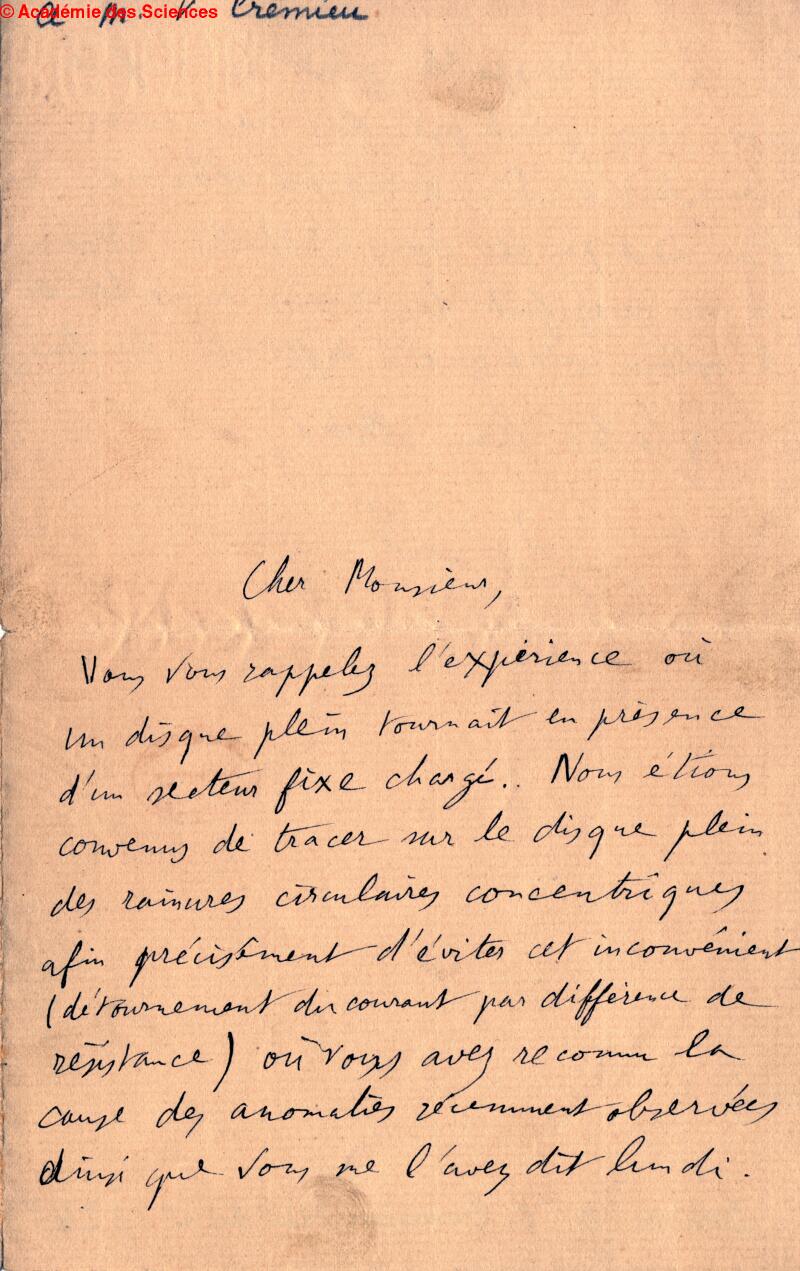 © Académie des Sciences
a M. V. Cremieu
Cher Monsieur,
Vous vous rappelez l'expérience où
un disque plein tournait en présence
d'un secteur fixe chargé.. Nous étions
convenus de tracer sur le disque plein
des rainures circulaires concentriques
afin précisément d'éviter cet inconvénient
(détournement du courant par différence de
résistance) où vous avez reconnu la
cause des anomalies récemment observées
ainsi que vous me l'avez dit lundi.